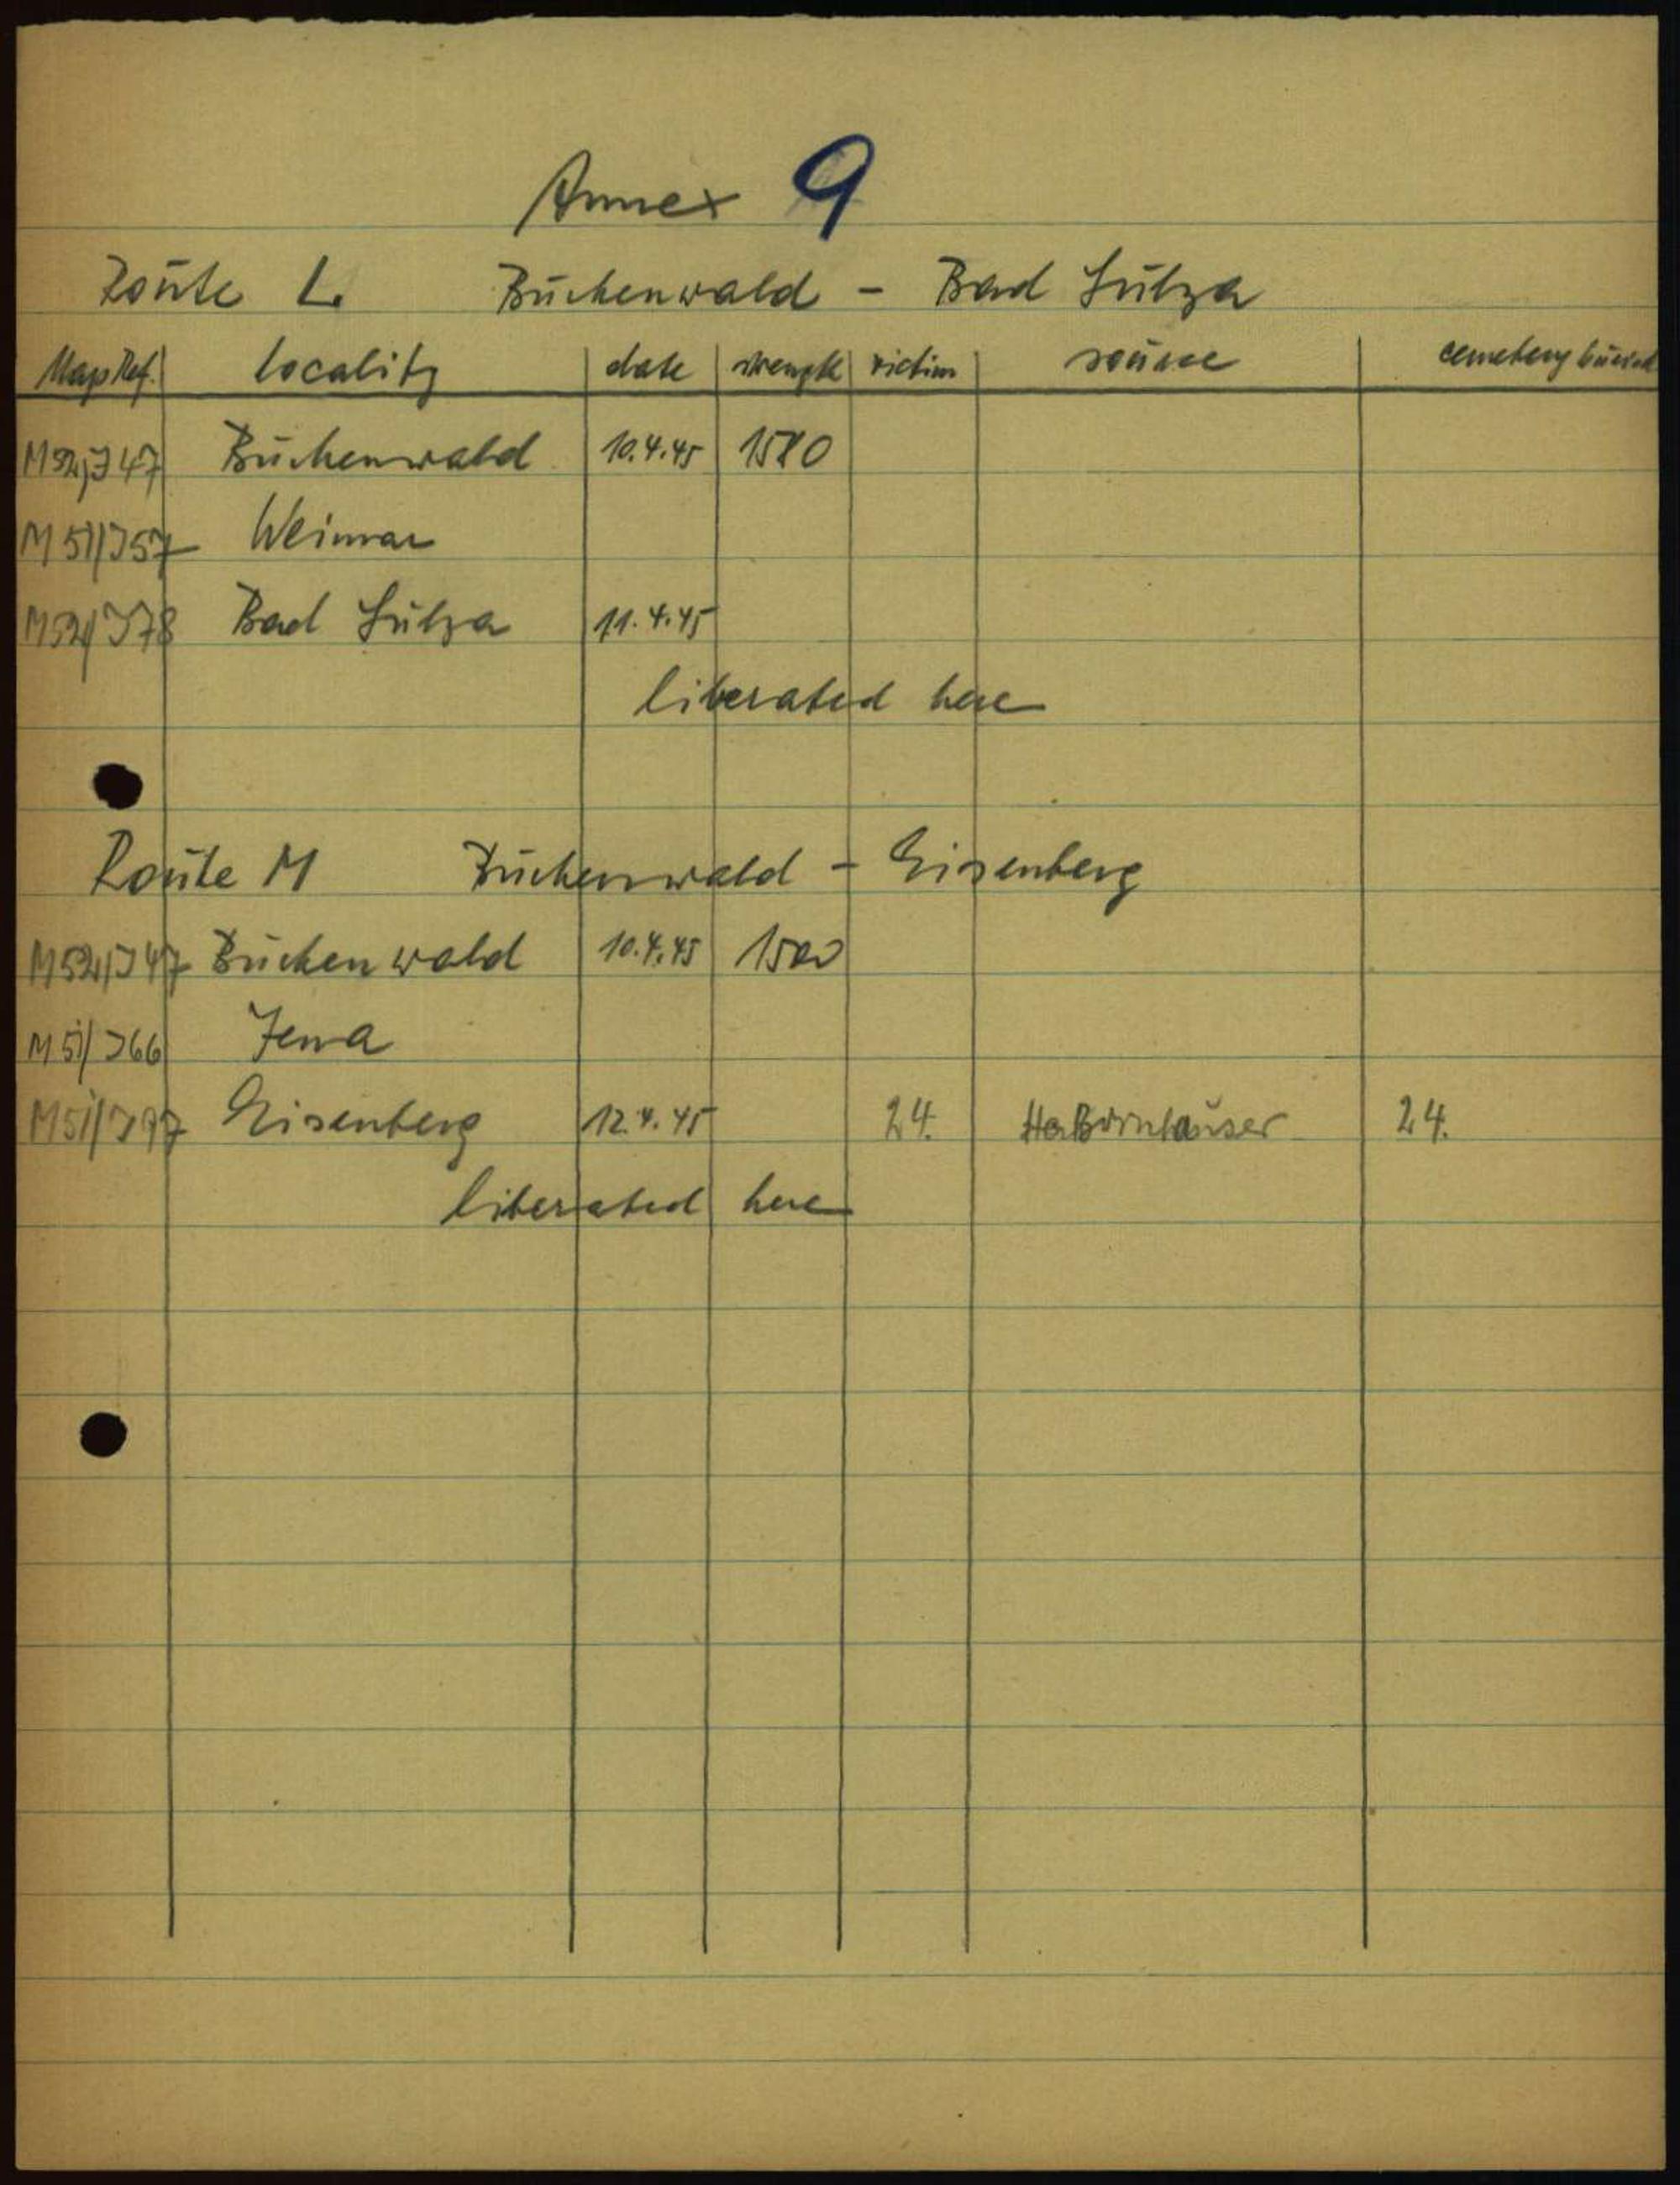 Annex 9
Route L. Buchenwald - Bad Sulza
Map Ref. locality date strength victim source cemetery burial
M52/J47 Buchenwald 10.4.45 1500
M51/J57 Weimar
M52/J78 Bad Sulza 11.4.45
liberated here
Route M Buchenwald - Eisenberg
M52/J47 Buchenwald 10.4.45 1500
M51/J66 Jena
M51/J97 Eisenberg 12.4.45 24. 24.
liberated here